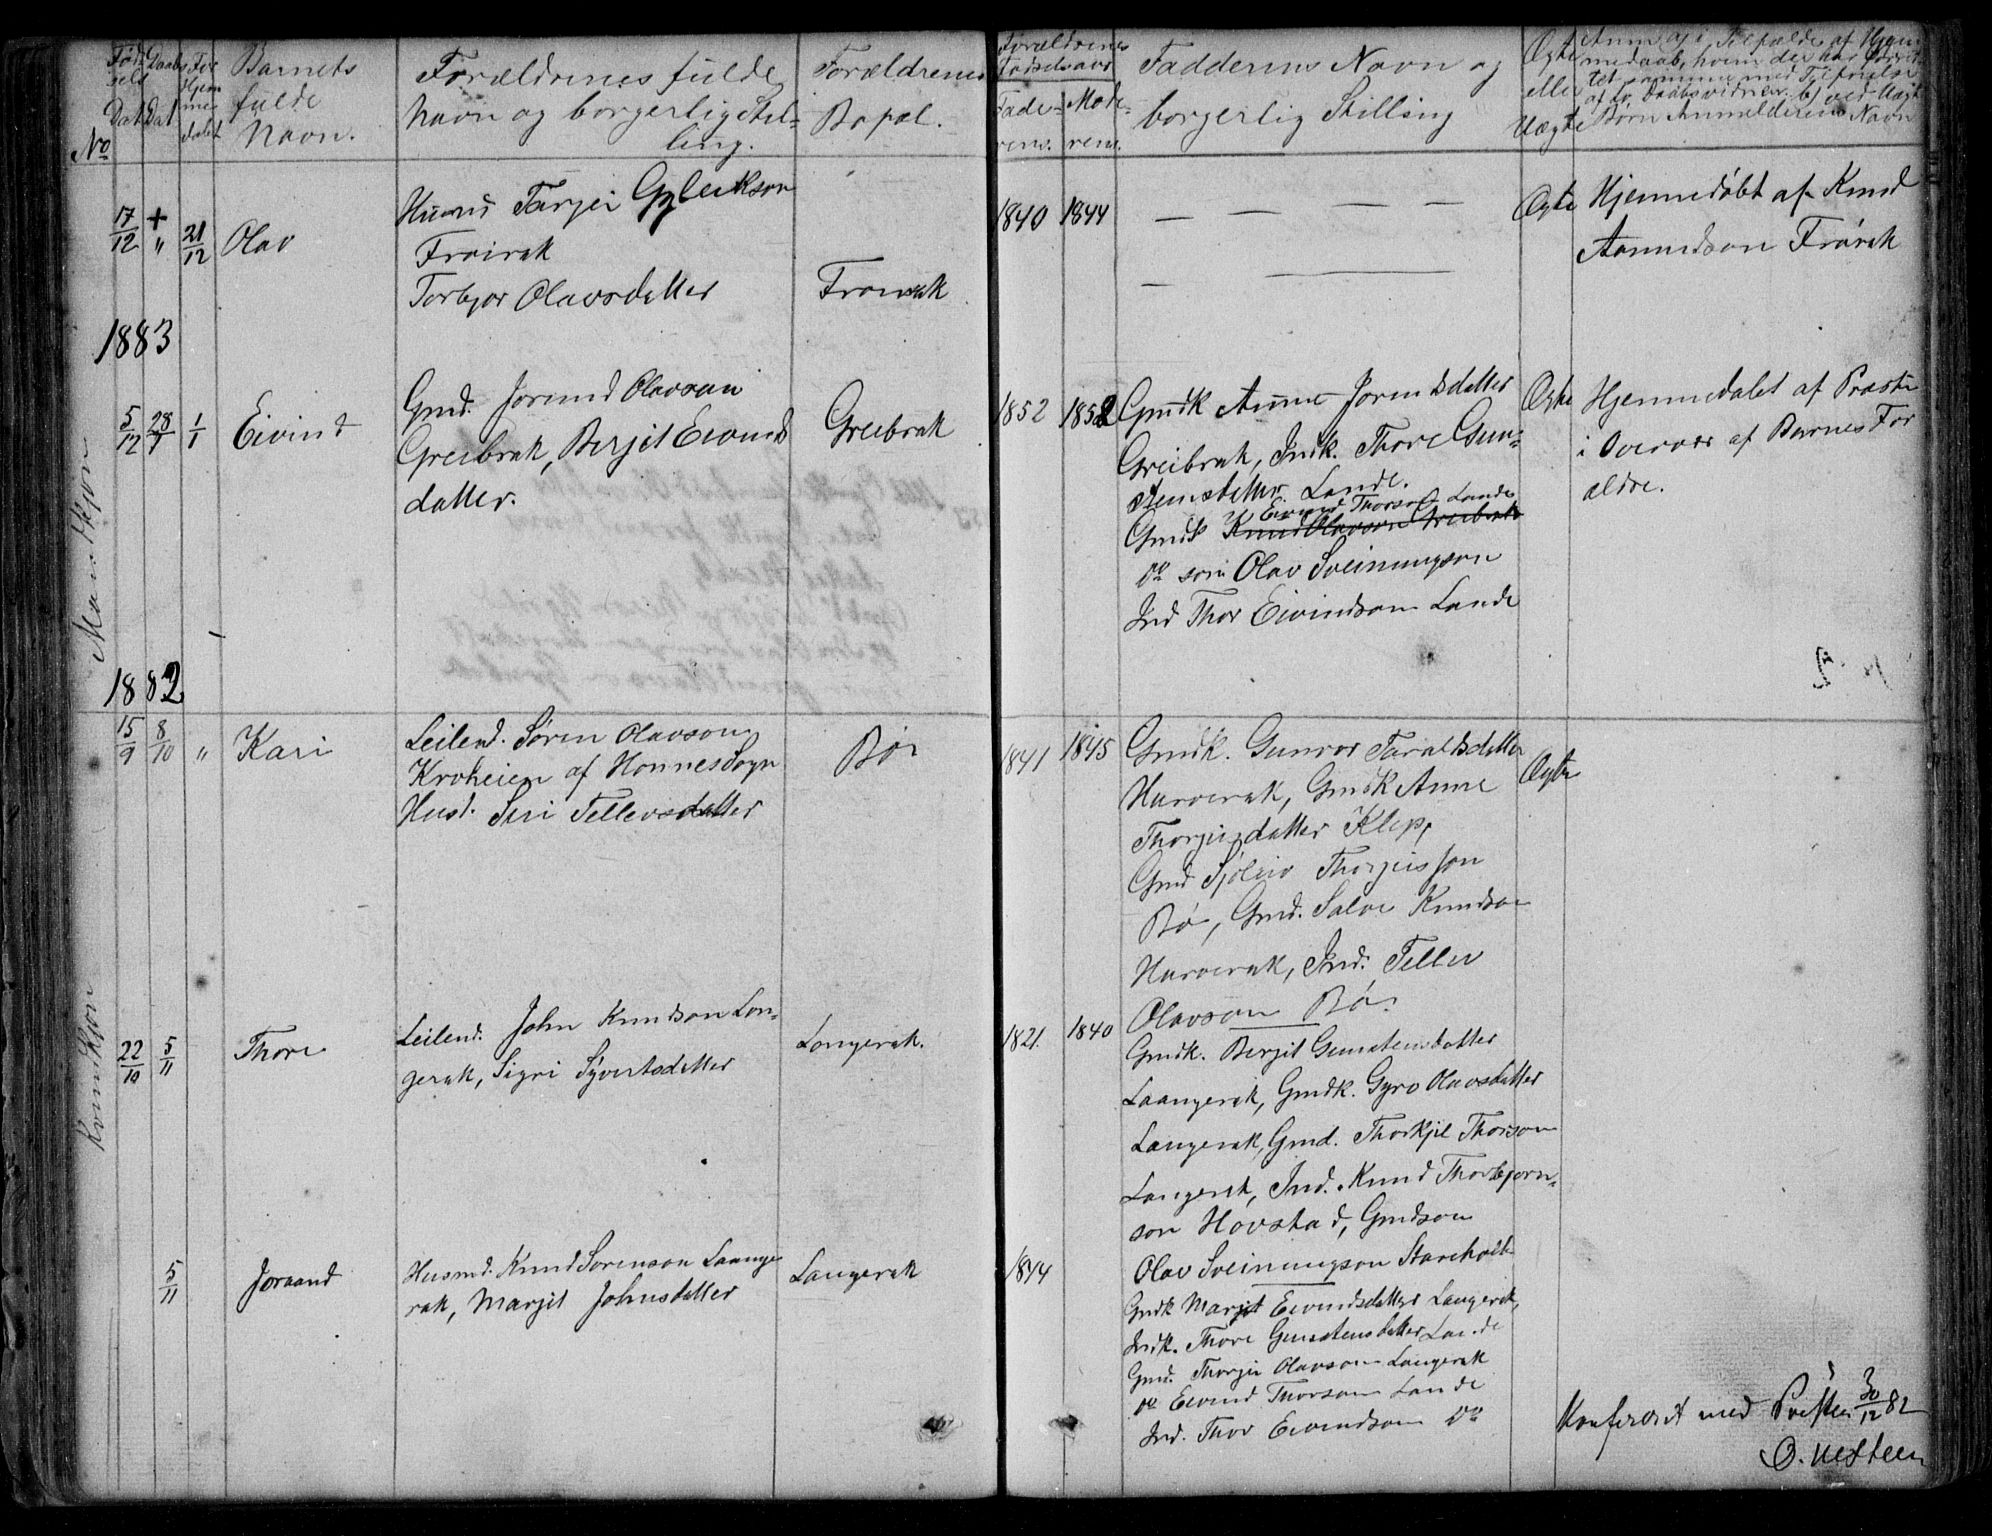 No
Fød-
seld
Dat
Daabs
Dat
For
Hjem
me
dabt
Barnets
fulde
Navn.
Forældrenes fulde
Navn og borgerlig Stil-
ling.
Forældrenes
Bopæl.
Forældrenes
Fødselsaar
Fade-
rens.
Mode-
rens.
Faddernes Navn og
borgerlig Stilling
Ægte
eller
Uægte
Anm. a) i Tilfælde af Hjem
medaab, hvem der har forret-
tet samme med Tilføielse
af to Daabsvidner b) ved Uægt
Børn Anmelderens Navn
Mandkjøn
17/12
+ "
21/12
Olav
Husmd Tarjei Gjleikson
Frøirak
Torbjør Olavsdatter
Frøirak
1840
1844
— — — —
—
Ægte
Hjemmedøbt af Knud
Aanundson Frørak
1883
5/12
28/1
1/1
Eivind
Gmd. Jorund Olavson
Greibrak, Berjit Eivinds
datter.
Greibrak
1852
1852
Gmdk Anne Jorundsdatter
Greibrak, Indk. Thore Gun-
stensdatter Lande.
Eivind Thorson Lande
Gmds Knud Olavson Greibrak
do søn Olav Sveinungson
Ind Thor Eivindson Lande
Ægte
Hjemmedøbt af Præsten
i Overvær af Barnes For
ældre.
1882
Kvindkjøn
15/9
8/10
"
Kari
Leilend. Søren Olavson
Kroheien af Honnes Sogn
Hust. Siri Tellevsdatter
Bø
1841
1845
Gmdk. Gunvor Taraldsdatter
Harverak, Gmdk Anne
Thorjeisdatter Klep,
Gmd Sjøleiv Thorjeisson
Bø, Gmd. Salve Knudson
Harverak, Ind. Tellev
Olavson Bø.
Ægte
22/10
5/11
Thore
Leilend. John Knudson Lon-
gerak, Sigri Syvertsdatter
Longerak.
1821.
1840
Gmdk. Berjit Gunstensdatter
Laangerak, Gmdk. Gyro Olavsdatter
Langerak, Gmd. Thorkjil Thorson
Langerak, Ind. Knud Thorbjørn-
son Hovstad, Gmdson
Olav Sveinungson
5/11
Joraand
Husmd. Knud Sørenson Laange
rak, Marjit Johnsdatter
Langerak
1844
Gmdk Marjit Eivindsdatter Langerak,
Indk. Thore Gunstensdatter Lande
Gmd. Thorjei Olavson Langerak
do Eivind Thorson Lande
Ind. Thor Eivindson do
Konfereret med Presten 30/12 82
O. Uesteen